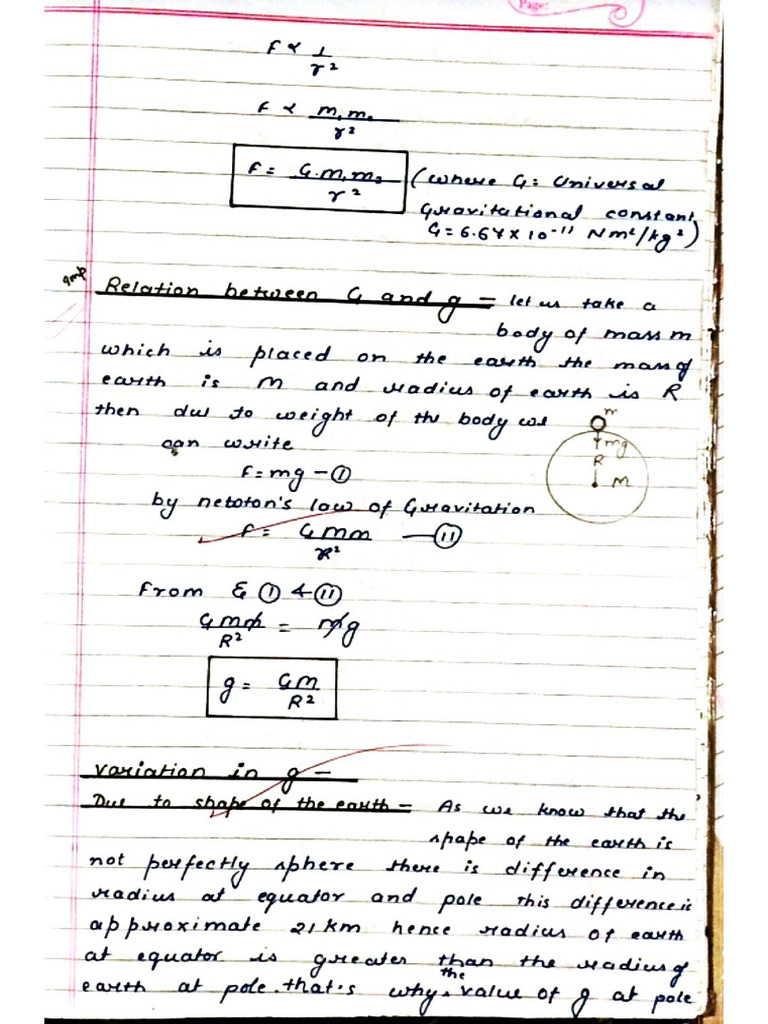 Page:
F ∝ 1/r²
F ∝ m₁m₂/r²
F = G.m₁m₂/r² (where G = Universal
Gravitational constant
G = 6.67 × 10⁻¹¹ Nm²/kg²)
Imp
Relation between G and g = let us take a
body of mass m
which is placed on the earth the mass of
earth is M and radius of earth is R
then due to weight of the body we
can write
m
mg
R
M
F = mg – ①
by netoton's law of Gravitation
F = GMm/R² — ⑪
From & ① & ⑪
GMm/R² = mg
g = GM/R²
Variation in g –
Due to shape of the earth = As we know that the
spape of the earth is
not perfectly sphere there is difference in
radius at equator and pole This difference is
approximate 21 km hence radius of earth
at equator is greater than the radius of
earth at pole. that's why the value of g at pole